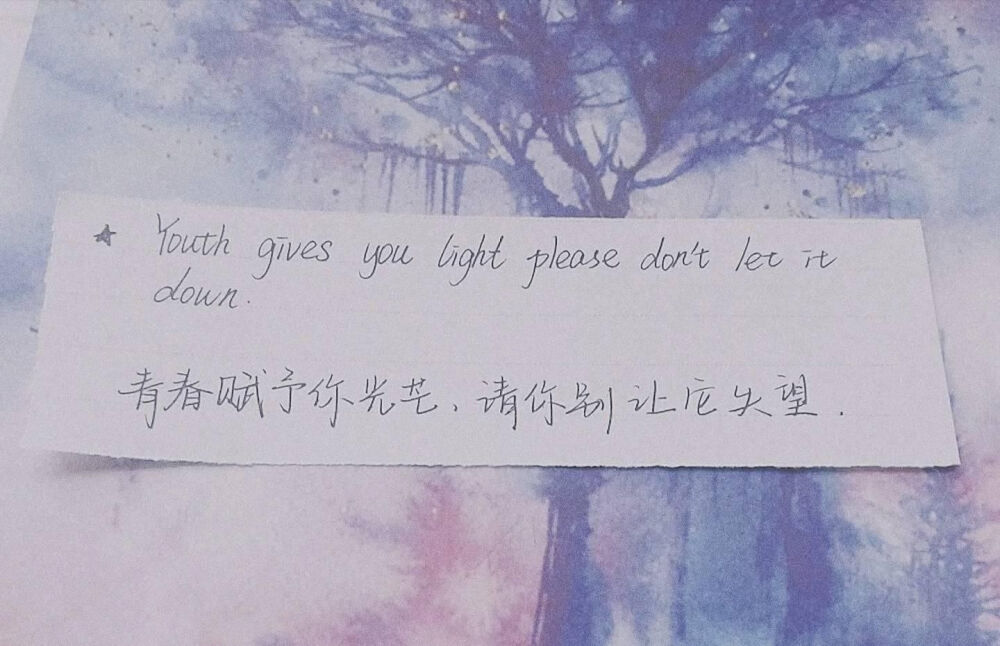 ★ Youth gives you light please don't let it
down.
青春赋予你光芒、请你别让它失望.